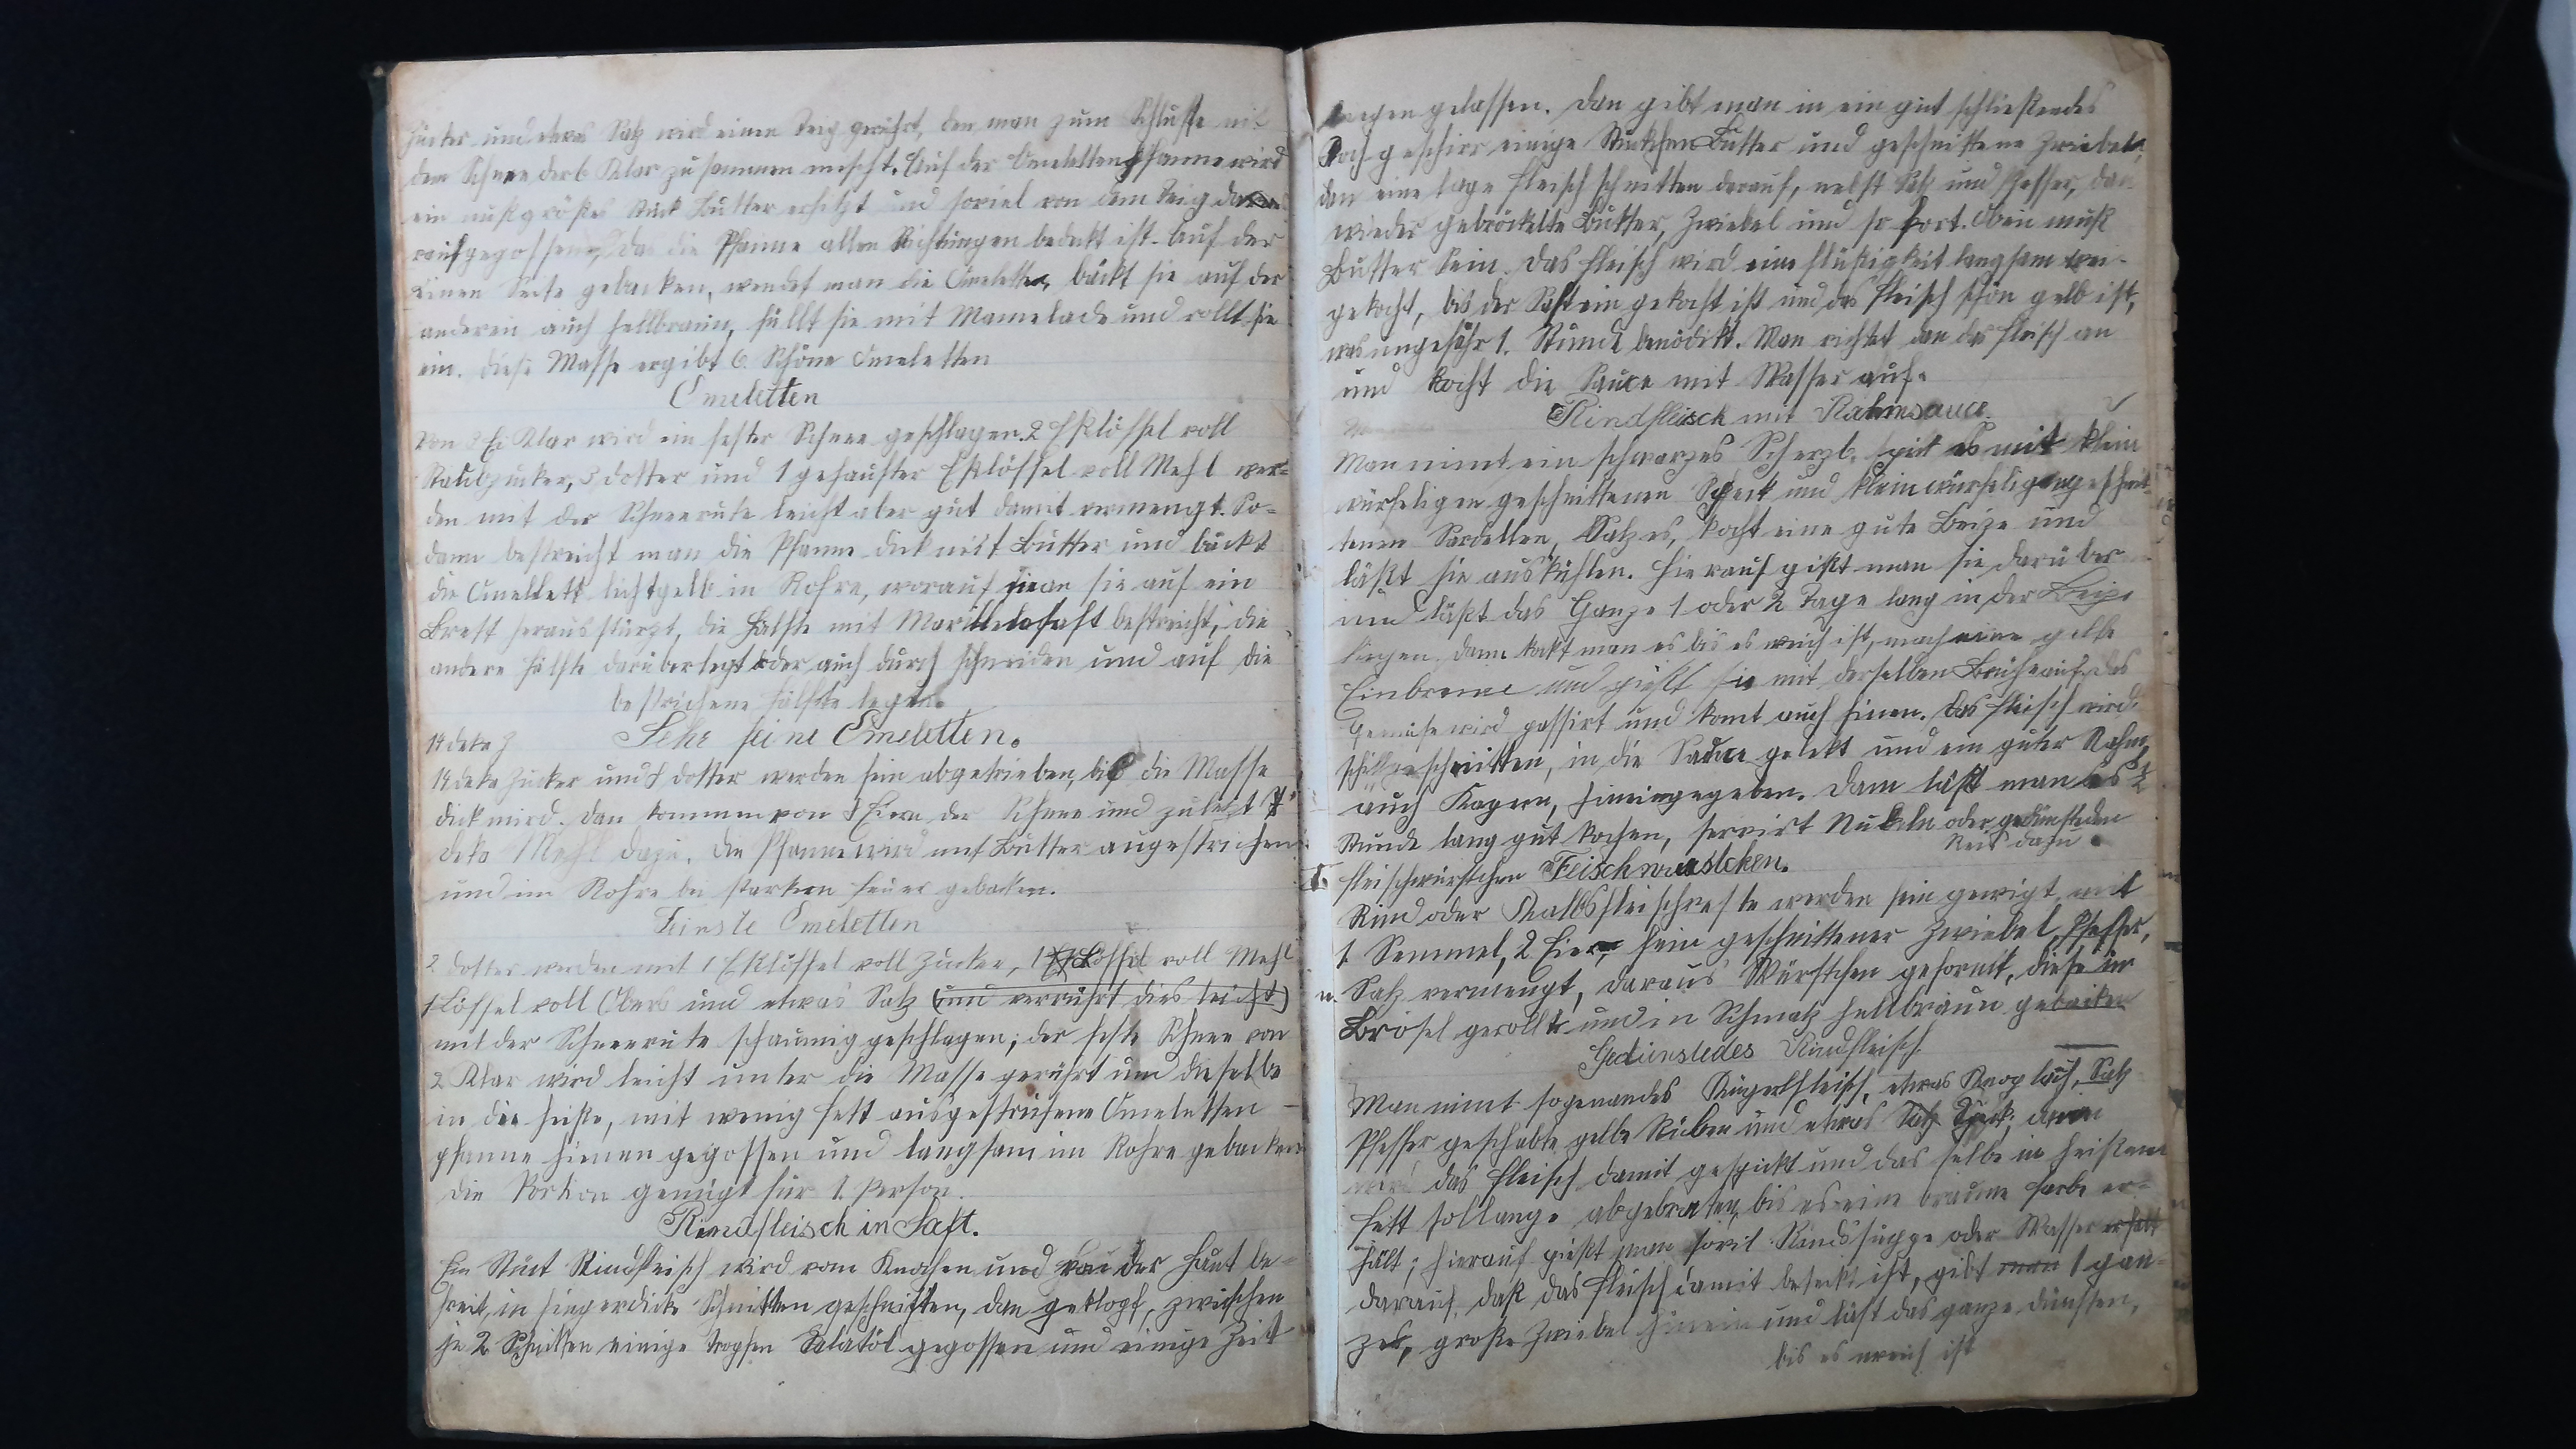 Zucker und etwas Salz wird einen Teig gerührt, den man zum Schlusse mit
dem Schnee der 6 Klar zusammen mischt. Auf der Omelettenpfanne wird
ein nußgroßes Stück Butter erhitzt und soviel von dem Teig
aufgegossen, das die Pfanne allen Richtungen bedekt ist. Auf der
einen Seite gebacken, wendet man die Omeletten, bäckt sie auf der
anderen auch hellbraun, füllt sie mit Mamelade und rollt sie
ein. diese Masse ergibt 6 Schöne Omeletten
Omeletten
Von 3 Ei Klar wird ein fester Schnee geschlagen. 2 Eßlöffel voll
Staubzucker, 3 dotter und 1 gehaufter Eßlöffel voll Mehl wer-
den mit der Schneerute leicht aber gut damit vermengt. So-
dann bestreicht man die Pfanne dick mit Butter und bäckt
die Omelett lichtgelb in Rohre, worauf man sie auf ein
Brett herausstürzt, die Hälfte mit bestreicht, die
andere Hälfte darüberlegt oder auch durch schneiden und auf die
bestrichene Hälfte legen.
14 deka Z
Sehr feine Omeletten.
14 deka Zucker und 8 dotter werden fein abgetrieben, bis die Masse
dick wird. dan kommen von 8 Eiern der Schnee und zuletzt 7
deka Mehl dazu. die Pfanne wird mit Butter angestrichen
und im Rohre bei starken feuer gebacken.
Feinste Omeletten
2 dotter werden mit 1 Eßlöffel voll Zucker, 1 Löffel voll Mehl
1 Löffel voll Obers und etwas Salz (und verrührt dies leicht)
mit der Schneerute schaumig geschlagen; der feste Schnee von
2 Klar wird leicht unter die Masse gerührt und dieselbe
in die heiße, mit wenig fett ausgestrichene Omeletten-
pfanne hienen gegossen und langsam im Rohre gebacken
die Portion genügt für 1. Person.
Rindfleisch in Saft.
Ein Stück Rindfleisch wird vom Knochen und von der Haut be-
freit, in fingerdicke Schnitten geschnitten, dan geklopf, zwischen
je 2 Schnitten einige Tropfen Salatöl gegossen und einige Zeit
liegen gelassen. dan gibt man in ein gut schließendes
Koch geschirr einige Stückchen Butter und geschnittene Zwiebel,
dan eine lage fleisch schnitten darauf, nebst Salz und Pfeffer, dan
wieder gebröckelte Butter, Zwiebel und so fort. Oben muß
Butter sein. das fleisch wird eine flüßigkeit langsam wei-
gekocht, bis der Saft ein gekocht ist und das fleisch schön gelb ist,
was ungefähr 1. Stunde benödikt. Man richtet dan das fleisch an
und kocht die Sauce mit Wasser auf.
Rindfleisch mit Rahmsauce.
Man nimt ein schwarzes Scherzl. spikt es mit klein
würfeligen geschnittenen Speck und kleinwürfelig geschnit-
tenen Sardellen, Salz es, kocht eine gute Beize und
läßt sie auskühlen. hierauf gißt man sie darüber
und läßt das Ganze 1 oder 2 Tage lang in der Beize
liegen. dann kokt man es bis es weich ist, mach eine gelbe
Einbrenne und gießt sie mit derselben Brühe auf, das
Gemüse wird passirt und komt auch hinen. das fleisch wird
geschnitten, in die Sauce gelekt und ein guter Rahm,
auch Kapern, hineingegeben. dann läßt man es ½
Stunde lang gut kochen, servirt Nudeln oder gedünsteden
Reis dazu.
fleischwürstchen Feischwurstchen.
Rind oder Kalbsfleischreste werden fein gewigt, mit
1 Semmel, 2 Eier, fein geschnittener Zwiebel, Pfeffer,
u. Salz vermengt, daraus Würstchen geformt, diese in
Brösel gerollt und in Schmalz hellbraun gebacken
Gedünstedes Rindfleisch
Man nimt sogenandes fleisch, etwas Knoplauch, Salz
Pfeffer geschabte gelbe Rüben und etwas Salz Speck; dann
wird das fleisch damit gespickt und das selbe in heißem
fett sollange abgebraten, bis es eine braune farbe er-
hält; hierauf gießt man sovil Rindssuppe oder Wasser erhält
darauf, daß das fleisch damit bedeckt ist, gibt man 1 gan-
zes, große Zwiebel hinein und läst das ganze dünsten,
bis es weich ist